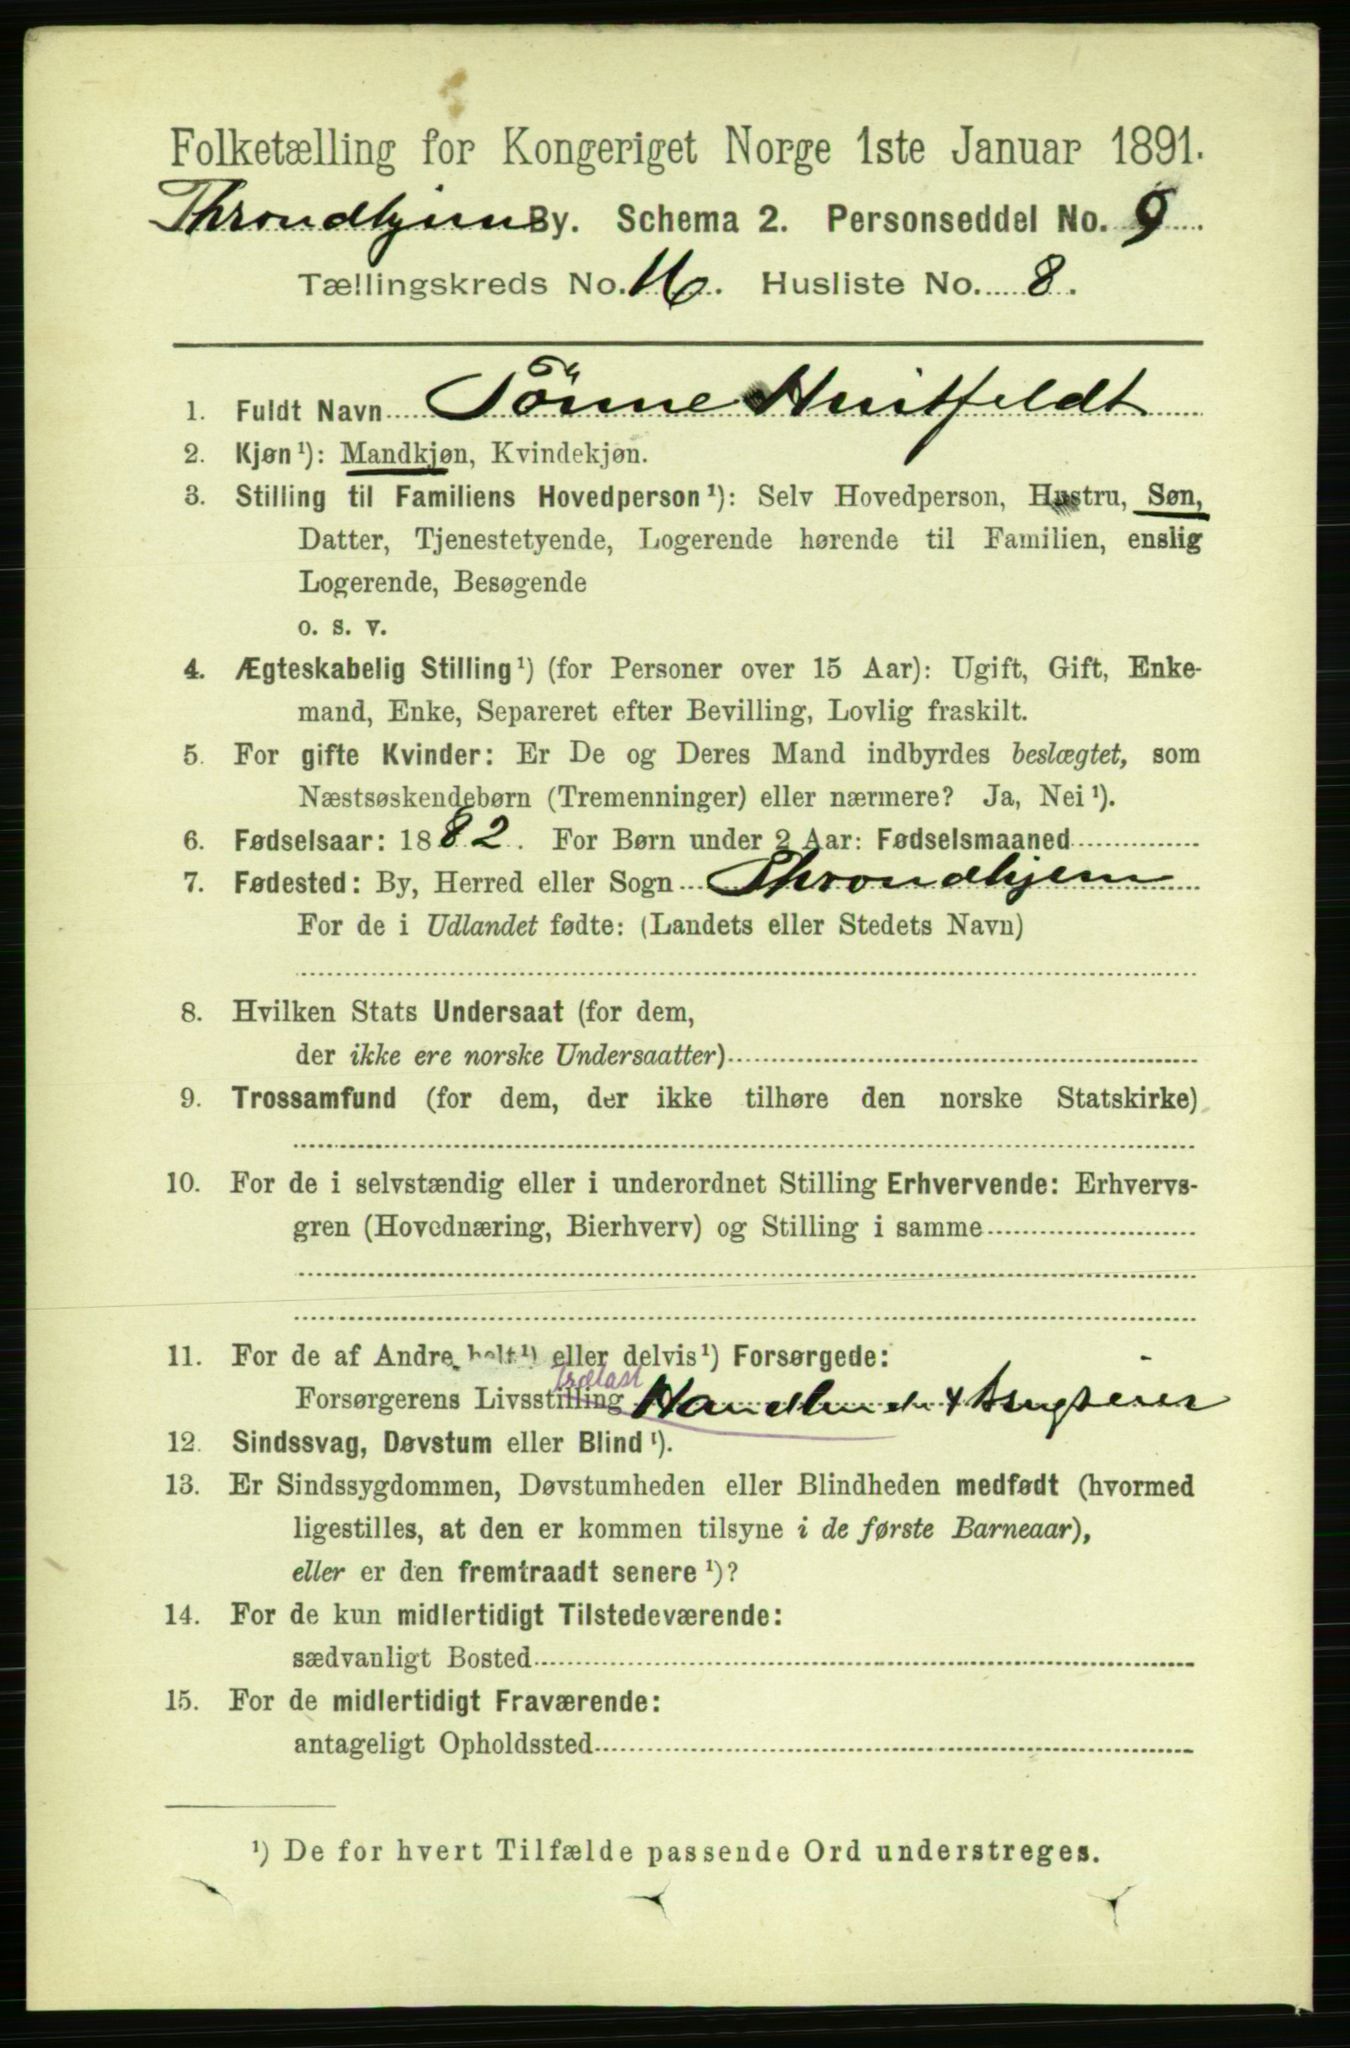 Folketælling for Kongeriget Norge 1ste Januar 1891.
Throndhjem By. Schema 2. Personseddel No. 9
Tællingskreds No. 16. Husliste No. 8.
1. Fuldt Navn Tönne Huitfeldt
2. Kjøn¹): Mandkjøn, Kvindekjøn.
3. Stilling til Familiens Hovedperson¹): Selv Hovedperson, Hustru, Søn,
Datter, Tjenestetyende, Logerende hørende til Familien, enslig
Logerende, Besøgende
o. s. v.
4. Ægteskabelig Stilling¹) (for Personer over 15 Aar): Ugift, Gift, Enke-
mand, Enke, Separeret efter Bevilling, Lovlig fraskilt.
5. For gifte Kvinder: Er De og Deres Mand indbyrdes beslægtet, som
Næstsøskendebørn (Tremenninger) eller nærmere? Ja, Nei¹).
6. Fødselsaar: 1882. For Børn under 2 Aar: Fødselsmaaned
7. Fødested: By, Herred eller Sogn Throndhjem
For de i Udlandet fødte: (Landets eller Stedets Navn)
8. Hvilken Stats Undersaat (for dem,
der ikke ere norske Undersaatter)
9. Trossamfund (for dem, der ikke tilhøre den norske Statskirke)
10. For de i selvstændig eller i underordnet Stilling Erhvervende: Erhvervs-
gren (Hovednæring, Bierhverv) og Stilling i samme
11. For de af Andre helt¹) eller delvis¹) Forsørgede:
Trælast
Forsørgerens Livsstilling Handlende & Brugseier
12. Sindssvag, Døvstum eller Blind¹).
13. Er Sindssygdommen, Døvstumheden eller Blindheden medfødt (hvormed
ligestilles, at den er kommen tilsyne i de første Barneaar),
eller er den fremtraadt senere¹)?
14. For de kun midlertidigt Tilstedeværende:
sædvanligt Bosted
15. For de midlertidigt Fraværende:
antageligt Opholdssted
¹) De for hvert Tilfælde passende Ord understreges.